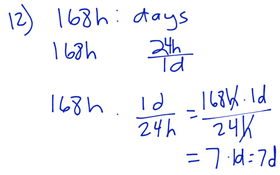 12) 168h : days
168h 24h/1d
168h · 1d/24h = 168h · 1d/24h
= 7 · 1d = 7d